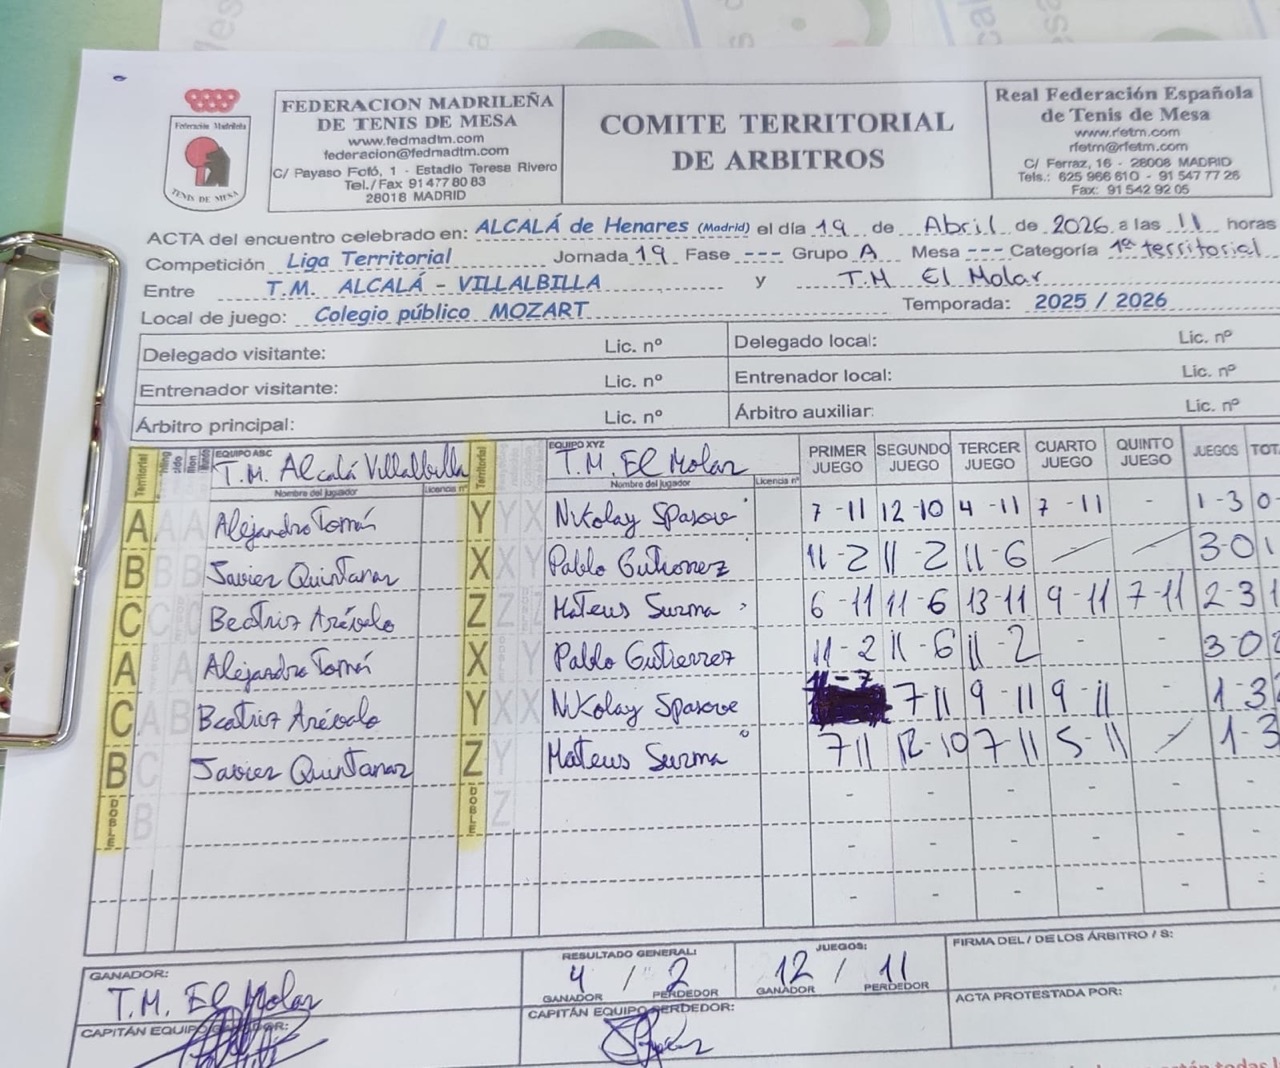 FEDERACION MADRILEÑA
DE TENIS DE MESA
www.fedmadtm.com
federacion@fedmadtm.com
C/ Payaso Fofó, 1 - Estadio Teresa Rivero
Tel./Fax 91 477 80 83
28018 MADRID
Federación Madrileña
TENIS DE MESA
COMITE TERRITORIAL
DE ARBITROS
Real Federación Española
de Tenis de Mesa
www.rfetm.com
rfetm@rfetm.com
C/ Ferraz, 16 - 28008 MADRID
Tels.: 625 966 610 - 91 547 77 26
Fax: 91 542 92 05
ACTA del encuentro celebrado en: ALCALÁ de Henares (Madrid) el día 19 de Abril de 2026 a las 11 horas
Competición Liga Territorial Jornada 19 Fase --- Grupo A Mesa --- Categoría 1ª territorial
Entre T.M. ALCALÁ - VILLALBILLA y T.M El Molar
Local de juego: Colegio público MOZART Temporada: 2025 / 2026
Delegado visitante: Lic. nº Delegado local: Lic. nº
Entrenador visitante: Lic. nº Entrenador local: Lic. nº
Árbitro principal: Lic. nº Árbitro auxiliar: Lic. nº
Territorial EQUIPO ABC T.M. Alcalá Villalbilla Territorial EQUIPO XYZ T.M. El Molar PRIMER JUEGO SEGUNDO JUEGO TERCER JUEGO CUARTO JUEGO QUINTO JUEGO JUEGOS TOT
Nombre del jugador Licencia nº Nombre del jugador Licencia nº
A A A Alejandro Tomás Y Y X Nikolay Spasove 7 -11 12-10 4 -11 7 -11 - 1-3 0
B B B Javier Quintanar X X Y Pablo Gutierrez 11-2 11-2 11-6 - - 3-0 1
C C C Beatriz Arévalo Z Z Z Mateus Surma 6-11 11-6 13-11 9-11 7-11 2-3 1
A A Alejandro Tomás X Y Pablo Gutierrez 11-2 11-6 11-2 - - 3 0 2
C A B Beatriz Arévalo Y X X Nikolay Spasove 11-7 7 11 9 -11 9 -11 - 1-3
B C Javier Quintanar Z Y Mateus Surma 7 11 12-10 7-11 5-11 - 1-3
DOBLE B DOBLE Z - - - - - -
- - - - - -
- - - - - -
GANADOR: T.M. El Molar
RESULTADO GENERAL: 4 / 2
GANADOR PERDEDOR
JUEGOS: 12 / 11
GANADOR PERDEDOR
FIRMA DEL / DE LOS ÁRBITRO / S:
CAPITÁN EQUIPO GANADOR:
CAPITÁN EQUIPO PERDEDOR:
ACTA PROTESTADA POR: